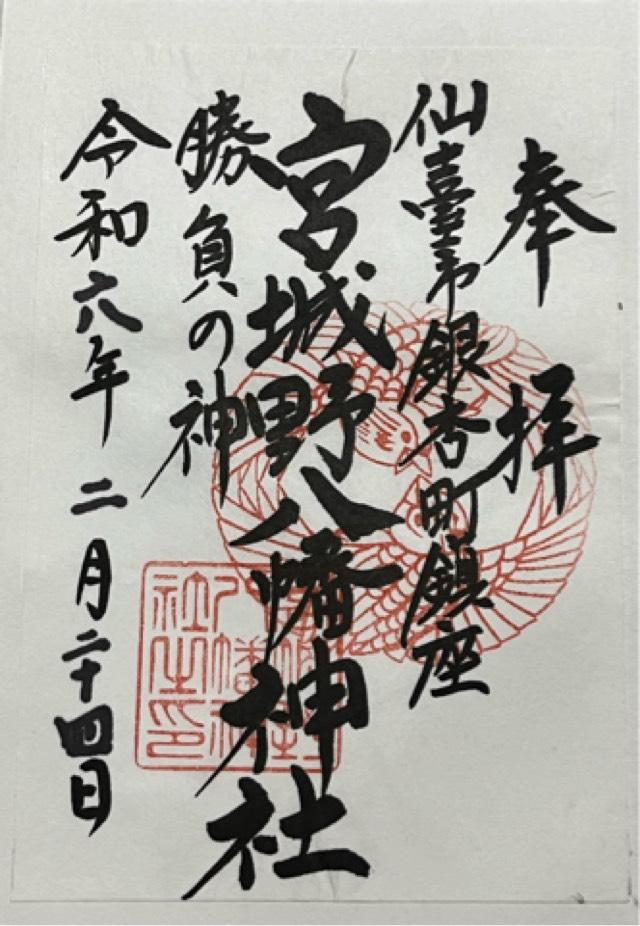 奉拝
仙臺市銀杏町鎮座
宮城野八幡神社
勝負の神
令和六年二月二十四日